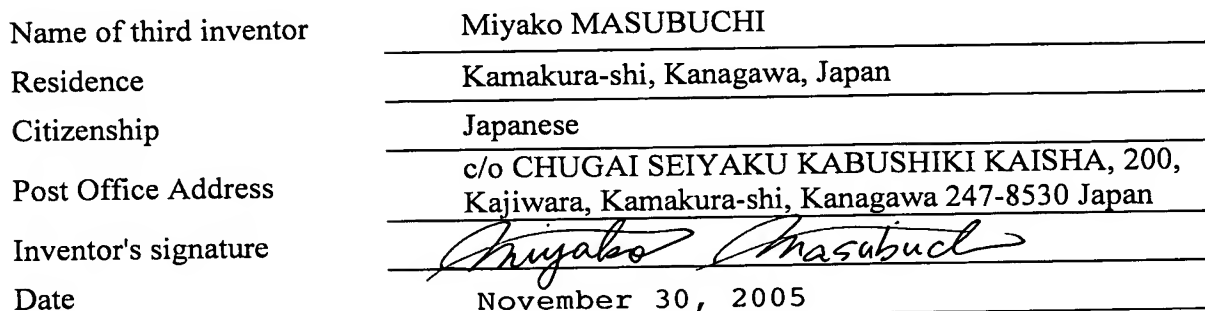 Name of third inventor Miyako MASUBUCHI
Residence Kamakura-shi, Kanagawa, Japan
Citizenship Japanese
Post Office Address c/o CHUGAI SEIYAKU KABUSHIKI KAISHA, 200,
Kajiwara, Kamakura-shi, Kanagawa 247-8530 Japan
Inventor's signature Miyako Masubuchi
Date November 30, 2005